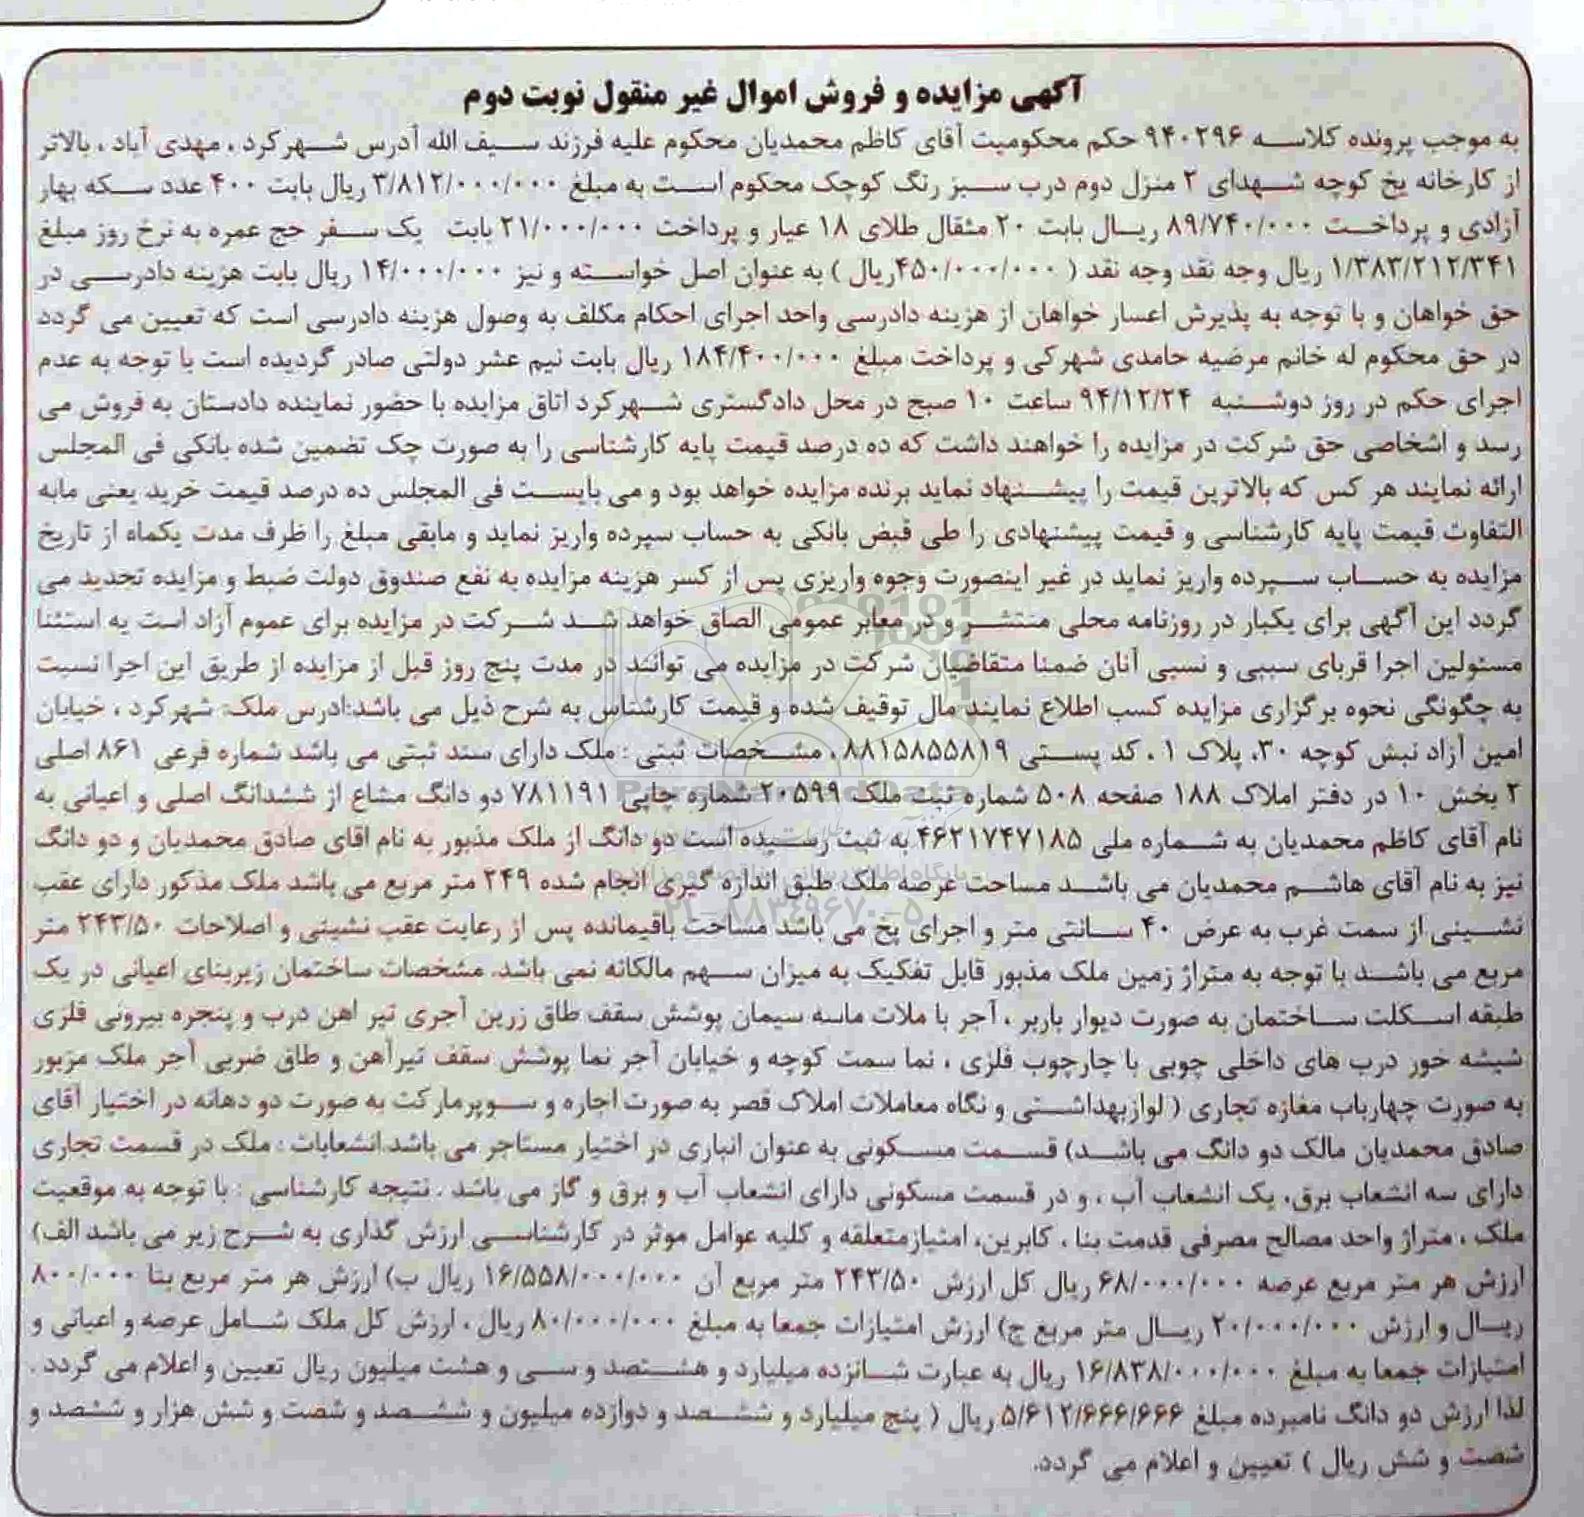 آگهی مزایده و فروش اموال غیر منقول نوبت دوم
به موجب پرونده کلاسه ۹۴۰۲۹۶ حکم محکومیت آقای کاظم محمدیان محکوم علیه فرزند سیف الله آدرس شهرکرد ، مهدی آباد ، بالاتر
از کارخانه یخ کوچه شهدای ۲ منزل دوم درب سبز رنگ کوچک محکوم است به مبلغ ۳/۸۱۲/۰۰۰/۰۰۰ ریال بابت ۴۰۰ عدد سکه بهار
آزادی و پرداخت ۸۹/۷۴۰/۰۰۰ ریال بابت ۲۰ مثقال طلای ۱۸ عیار و پرداخت ۲۱/۰۰۰/۰۰۰ بابت یک سفر حج عمره به نرخ روز مبلغ
۱/۳۸۳/۲۱۲/۳۴۱ ریال وجه نقد وجه نقد ( ۴۵۰/۰۰۰/۰۰۰ریال ) به عنوان اصل خواسته و نیز ۱۴/۰۰۰/۰۰۰ ریال بابت هزینه دادرسی در
حق خواهان و با توجه به پذیرش اعسار خواهان از هزینه دادرسی واحد اجرای احکام مکلف به وصول هزینه دادرسی است که تعیین می گردد
در حق محکوم له خانم مرضیه حامدی شهرکی و پرداخت مبلغ ۱۸۴/۴۰۰/۰۰۰ ریال بابت نیم عشر دولتی صادر گردیده است با توجه به عدم
اجرای حکم در روز دوشنبه ۹۴/۱۲/۲۴ ساعت ۱۰ صبح در محل دادگستری شهرکرد اتاق مزایده با حضور نماینده دادستان به فروش می
رسد و اشخاصی حق شرکت در مزایده را خواهند داشت که ده درصد قیمت پایه کارشناسی را به صورت چک تضمین شده بانکی فی المجلس
ارائه نمایند هر کس که بالاترین قیمت را پیشنهاد نماید برنده مزایده خواهد بود و می بایست فی المجلس ده درصد قیمت خرید یعنی مابه
التفاوت قیمت پایه کارشناسی و قیمت پیشنهادی را طی قبض بانکی به حساب سپرده واریز نماید و مابقی مبلغ را ظرف مدت یکماه از تاریخ
مزایده به حساب سپرده واریز نماید در غیر اینصورت وجوه واریزی پس از کسر هزینه مزایده به نفع صندوق دولت ضبط و مزایده تجدید می
گردد این آگهی برای یکبار در روزنامه محلی منتشر و در معابر عمومی الصاق خواهد شد شرکت در مزایده برای عموم آزاد است به استثنا
مسئولین اجرا قربای سببی و نسبی آنان ضمنا متقاضیان شرکت در مزایده می توانند در مدت پنج روز قبل از مزایده از طریق این اجرا نسبت
به چگونگی نحوه برگزاری مزایده کسب اطلاع نمایند مال توقیف شده و قیمت کارشناس به شرح ذیل می باشد:ادرس ملک: شهرکرد ، خیابان
امین آزاد نبش کوچه ۳۰، پلاک ۱ ، کد پستی ۸۸۱۵۸۵۵۸۱۹ ، مشخصات ثبتی : ملک دارای سند ثبتی می باشد شماره فرعی ۸۶۱ اصلی
۲ بخش ۱۰ در دفتر املاک ۱۸۸ صفحه ۵۰۸ شماره ثبت ملک ۲۰۵۹۹ شماره چاپی ۷۸۱۱۹۱ دو دانگ مشاع از ششدانگ اصلی و اعیانی به
نام آقای کاظم محمدیان به شماره ملی ۴۶۲۱۷۴۷۱۸۵ به ثبت رسیده است دو دانگ از ملک مذبور به نام اقای صادق محمدیان و دو دانگ
نیز به نام آقای هاشم محمدیان می باشد مساحت عرصه ملک طبق اندازه گیری انجام شده ۲۴۹ متر مربع می باشد ملک مذکور دارای عقب
نشینی از سمت غرب به عرض ۴۰ سانتی متر و اجرای پخ می باشد مساحت باقیمانده پس از رعایت عقب نشینی و اصلاحات ۲۴۳/۵۰ متر
مربع می باشد با توجه به متراژ زمین ملک مذبور قابل تفکیک به میزان سهم مالکانه نمی باشد. مشخصات ساختمان زیربنای اعیانی در یک
طبقه اسکلت ساختمان به صورت دیوار باربر ، آجر با ملات ماسه سیمان پوشش سقف طاق زرین آجری تیر اهن درب و پنجره بیرونی فلزی
شیشه خور درب های داخلی چوبی با چارچوب فلزی ، نما سمت کوچه و خیابان آجر نما پوشش سقف تیرآهن و طاق ضربی آجر ملک مزبور
به صورت چهارباب مغازه تجاری ( لوازبهداشتی و نگاه معاملات املاک قصر به صورت اجاره و سوپرمارکت به صورت دو دهانه در اختیار آقای
صادق محمدیان مالک دو دانگ می باشد) قسمت مسکونی به عنوان انباری در اختیار مستاجر می باشد.انشعابات : ملک در قسمت تجاری
دارای سه انشعاب برق، یک انشعاب آب ، و در قسمت مسکونی دارای انشعاب آب و برق و گاز می باشد . نتیجه کارشناسی : با توجه به موقعیت
ملک ، متراژ واحد مصالح مصرفی قدمت بنا ، کابرین، امتیازمتعلقه و کلیه عوامل موثر در کارشناسی ارزش گذاری به شرح زیر می باشد الف)
ارزش هر متر مربع عرصه ۶۸/۰۰۰/۰۰۰ ریال کل ارزش ۲۴۳/۵۰ متر مربع آن ۱۶/۵۵۸/۰۰۰/۰۰۰ ریال ب) ارزش هر متر مربع بنا ۸۰۰/۰۰۰
ریال و ارزش ۲۰/۰۰۰/۰۰۰ ریال متر مربع ج) ارزش امتیازات جمعا به مبلغ ۸۰/۰۰۰/۰۰۰ ریال ، ارزش کل ملک شامل عرصه و اعیانی و
امتیازات جمعا به مبلغ ۱۶/۸۳۸/۰۰۰/۰۰۰ ریال به عبارت شانزده میلیارد و هشتصد و سی و هشت میلیون ریال تعیین و اعلام می گردد .
لذا ارزش دو دانگ نامبرده مبلغ ۵/۶۱۲/۶۶۶/۶۶۶ ریال ( پنج میلیارد و ششصد و دوازده میلیون و ششصد و شصت و شش هزار و ششصد و
شصت و شش ریال ) تعیین و اعلام می گردد.